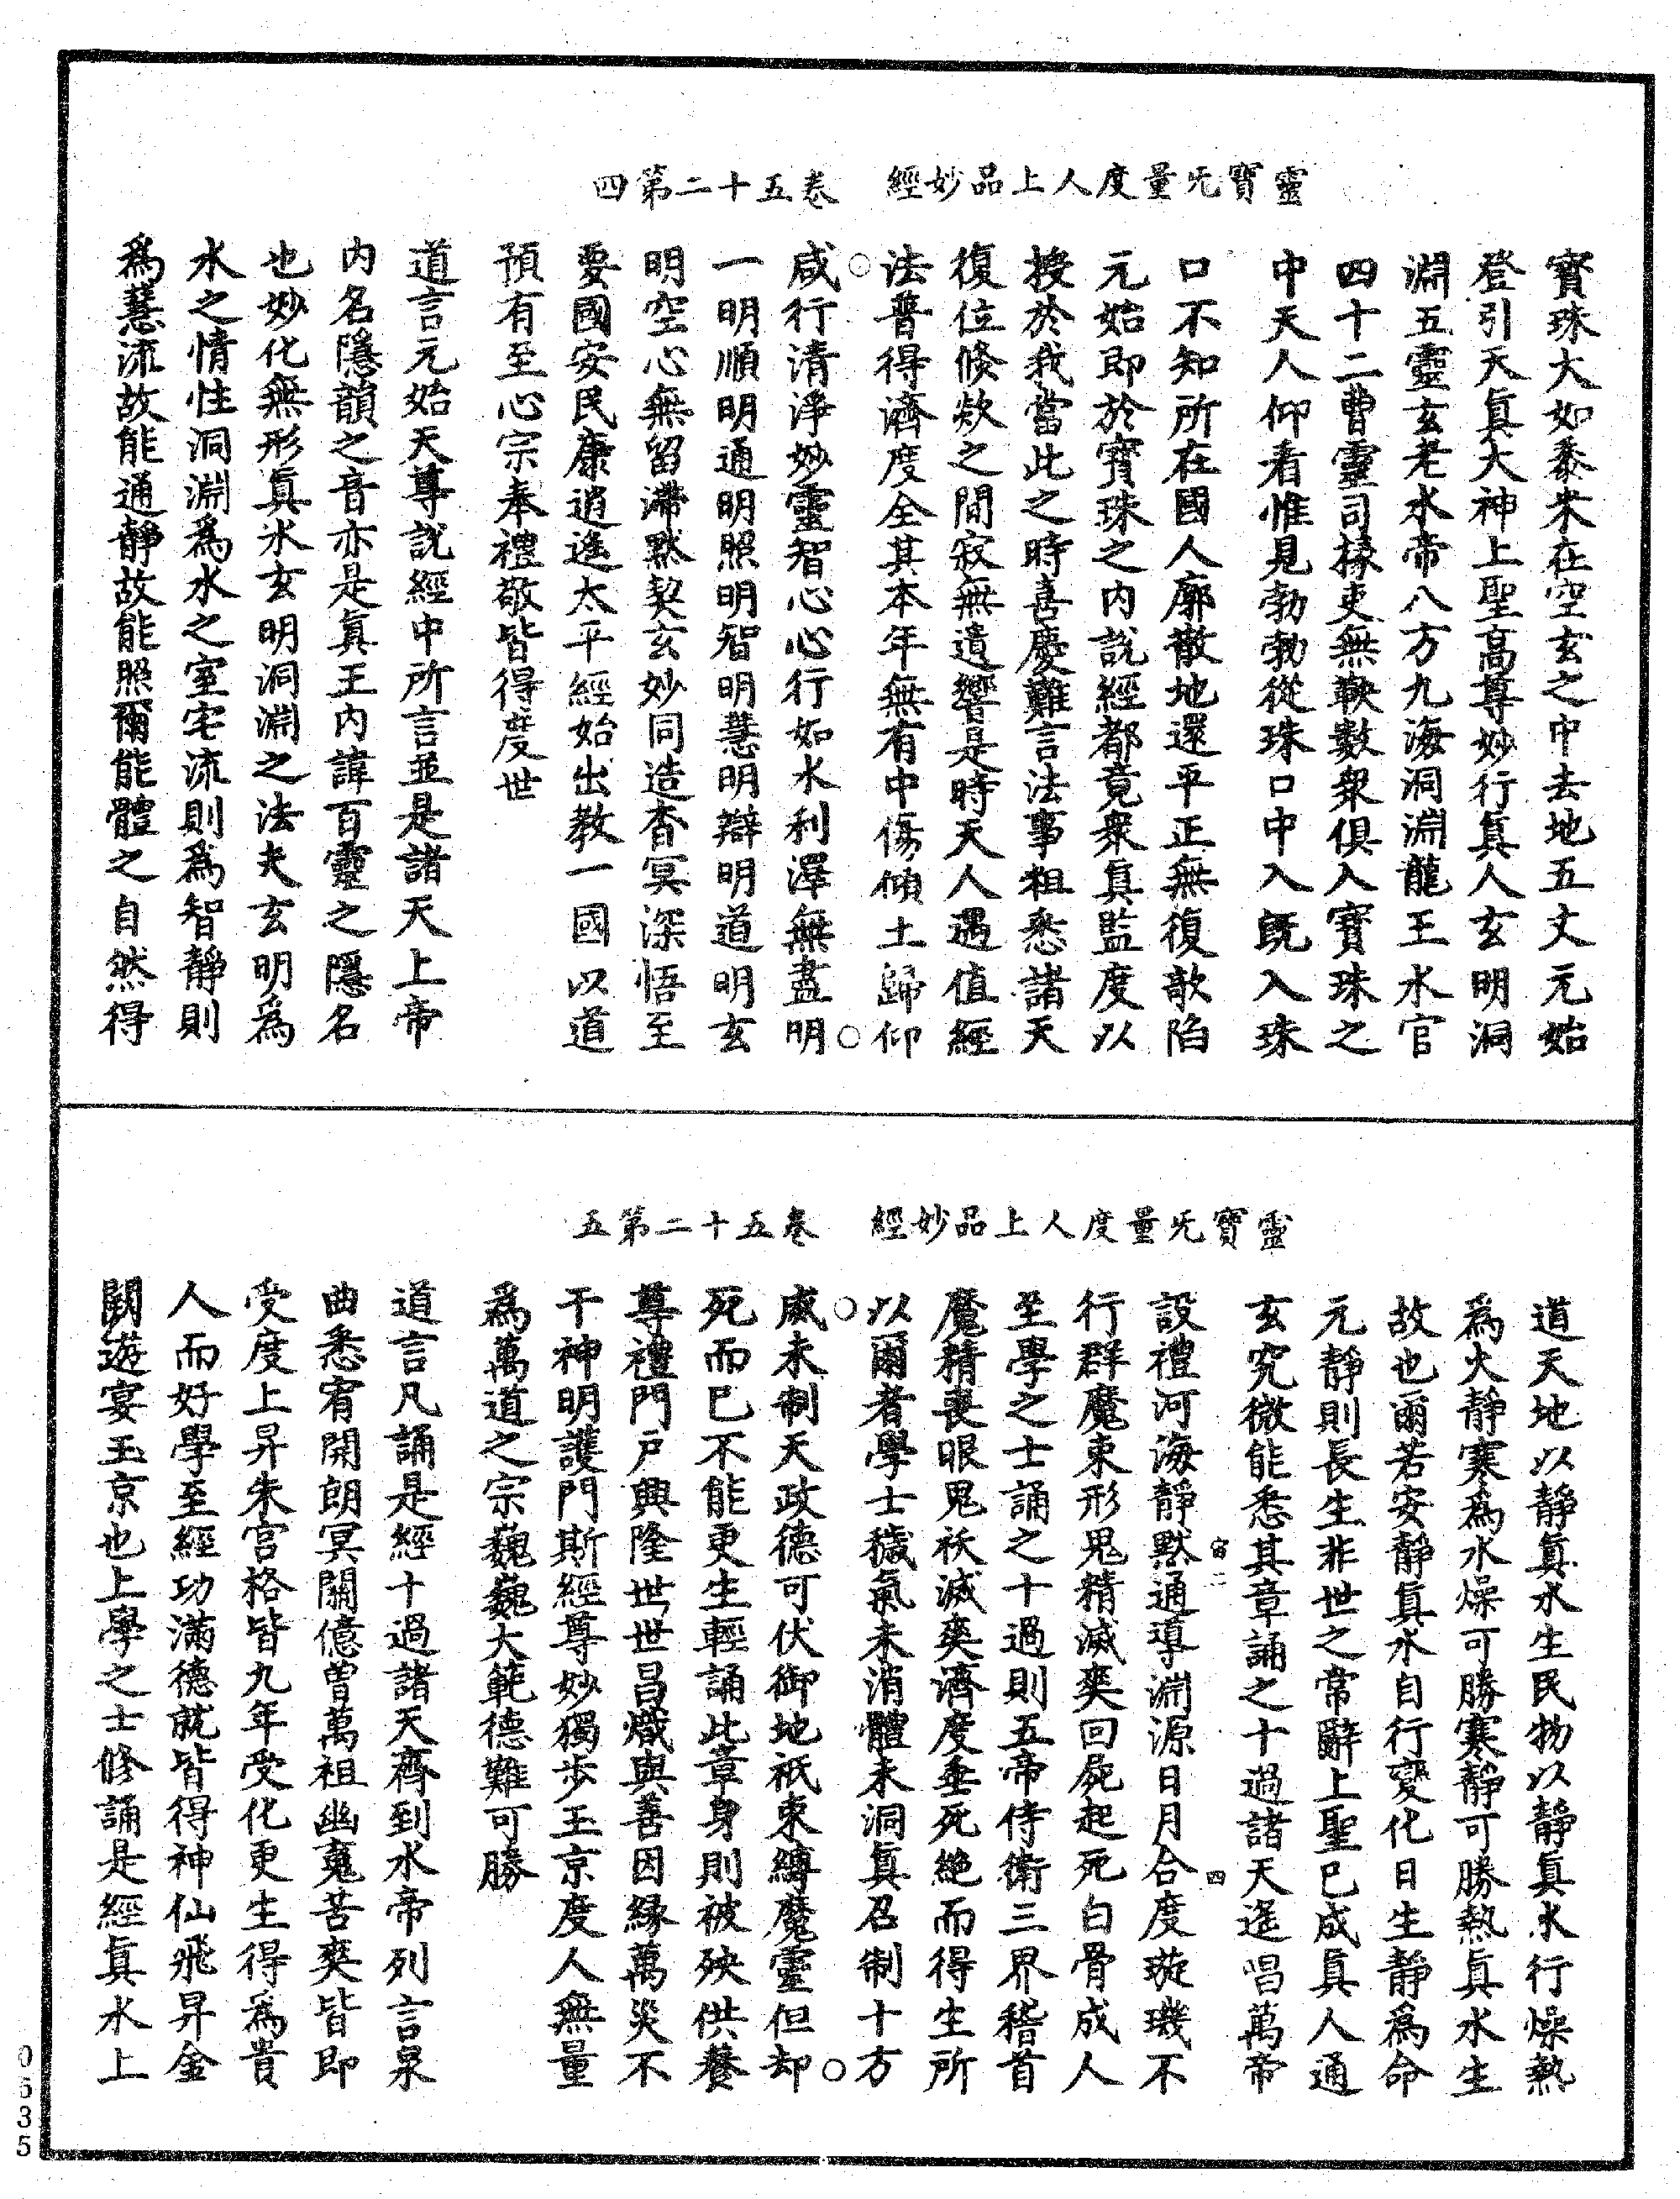 靈寶无量度人上品妙經　卷五十二第四
寶珠大如黍米在空玄之中去地五丈元始
登引天眞大神上聖高尊妙行眞人玄明洞
淵五靈玄老水帝八方九海洞淵龍王水官
四十二曹靈司掾吏無鞅數衆俱入寶珠之
中天人仰看惟見勃勃從珠口中入旣入珠
口不知所在國人廓散地還平正無復敧陷
元始即於寶珠之內說經都竟衆眞監度以
授於我當此之時喜慶難言法事粗悉諸天
復位倏欻之間寂無遺響是時天人遇值經
法普得濟度全其本年無有中傷傾土歸仰
咸行清淨妙靈智心心行如水利澤無盡明
一明順明通明照明智明慧明辯明道明玄
明空心無留滯默契玄妙同造杳冥深悟至
要國安民康逍遙太平經始出教一國以道
預有至心宗奉禮敬皆得度世
道言元始天尊說經中所言並是諸天上帝
內名隱韻之音亦是眞王內諱百靈之隱名
也妙化無形眞水玄明洞淵之法夫玄明爲
水之情性洞淵爲水之室宅流則爲智靜則
爲慧流故能通靜故能照爾能體之自然得
靈寶无量度人上品妙經　卷五十二第五
道天地以靜眞水生民物以靜眞水行燥熱
爲火靜寒爲水燥可勝寒靜可勝熱眞水生
故也爾若安靜眞水自行變化日生靜爲命
元靜則長生非世之常辭上聖已成眞人通
玄究微能悉其章誦之十過諸天遙唱萬帝
設禮河海靜默通導淵源日月合度璇璣不
宙二　四
行群魔束形鬼精滅爽回屍起死白骨成人
至學之士誦之十過則五帝侍衛三界稽首
魔精喪眼鬼祅滅爽濟度垂死絕而得生所
以爾者學士穢氣未消體未洞眞召制十方
威未制天政德可伏御地祇束縛魔靈但却
死而已不能更生輕誦此章身則被殃供養
尊禮門戶興隆世世昌熾與善因緣萬災不
干神明護門斯經尊妙獨步玉京度人無量
爲萬道之宗巍巍大範德難可勝
道言凡誦是經十過諸天齊到水帝列言泉
曲悉宥開朗冥關億曾萬祖幽䰟苦爽皆即
受度上昇朱宮格皆九年受化更生得爲貴
人而好學至經功滿德就皆得神仙飛昇金
闕遊宴玉京也上學之士修誦是經眞水上
0635